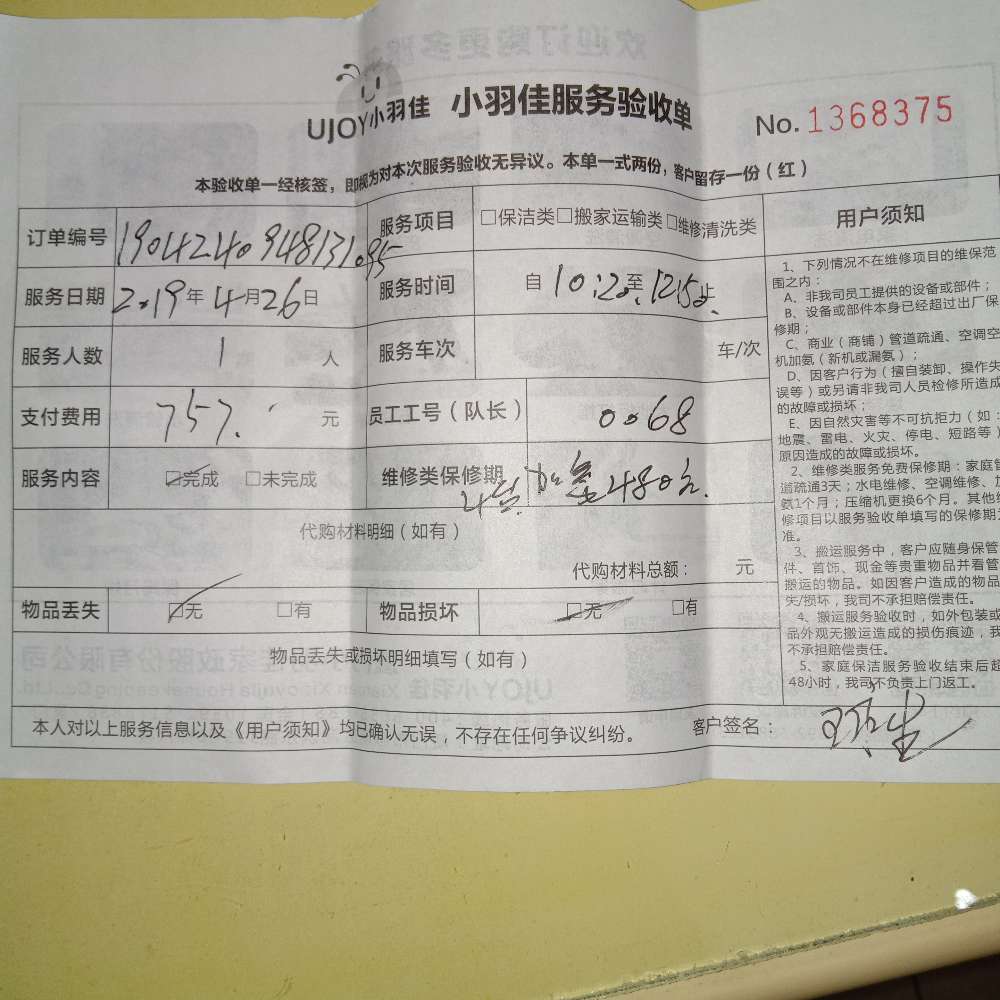 UJOY小羽佳 小羽佳服务验收单 No.1368375
本验收单一经核签，即视为对本次服务验收无异议。本单一式两份，客户留存一份（红）
订单编号 1904240948131095 服务项目 □保洁类□搬家运输类□维修清洗类
服务日期 2019年4月26日 服务时间 自10:20至12:50止
服务人数 1 人 服务车次 车/次
支付费用 757. 元 员工工号（队长） 0068
服务内容 ☑完成 □未完成 维修类保修期 480元.
代购材料明细（如有）
代购材料总额： 元
物品丢失 ☑无 □有 物品损坏 ☑无 □有
物品丢失或损坏明细填写（如有）
本人对以上服务信息以及《用户须知》均已确认无误，不存在任何争议纠纷。 客户签名：
用户须知
1、下列情况不在维修项目的维保范
围之内：
A、非我司员工提供的设备或部件；
B、设备或部件本身已经超过出厂保
修期；
C、商业（商铺）管道疏通、空调空
机加氨（新机或漏氨）；
D、因客户行为（擅自装卸、操作失
误等）或另请非我司人员检修所造成
的故障或损坏；
E、因自然灾害等不可抗拒力（如：
地震、雷电、火灾、停电、短路等）
原因造成的故障或损坏。
2、维修类服务免费保修期：家庭管
道疏通3天；水电维修、空调维修、加
氨1个月；压缩机更换6个月。其他维
修项目以服务验收单填写的保修期为
准。
3、搬运服务中，客户应随身保管
件、首饰、现金等贵重物品并看管
搬运的物品。如因客户造成的物品
失/损坏，我司不承担赔偿责任。
4、搬运服务验收时，如外包装或
品外观无搬运造成的损伤痕迹，我
不承担赔偿责任。
5、家庭保洁服务验收结束后超
48小时，我司不负责上门返工。